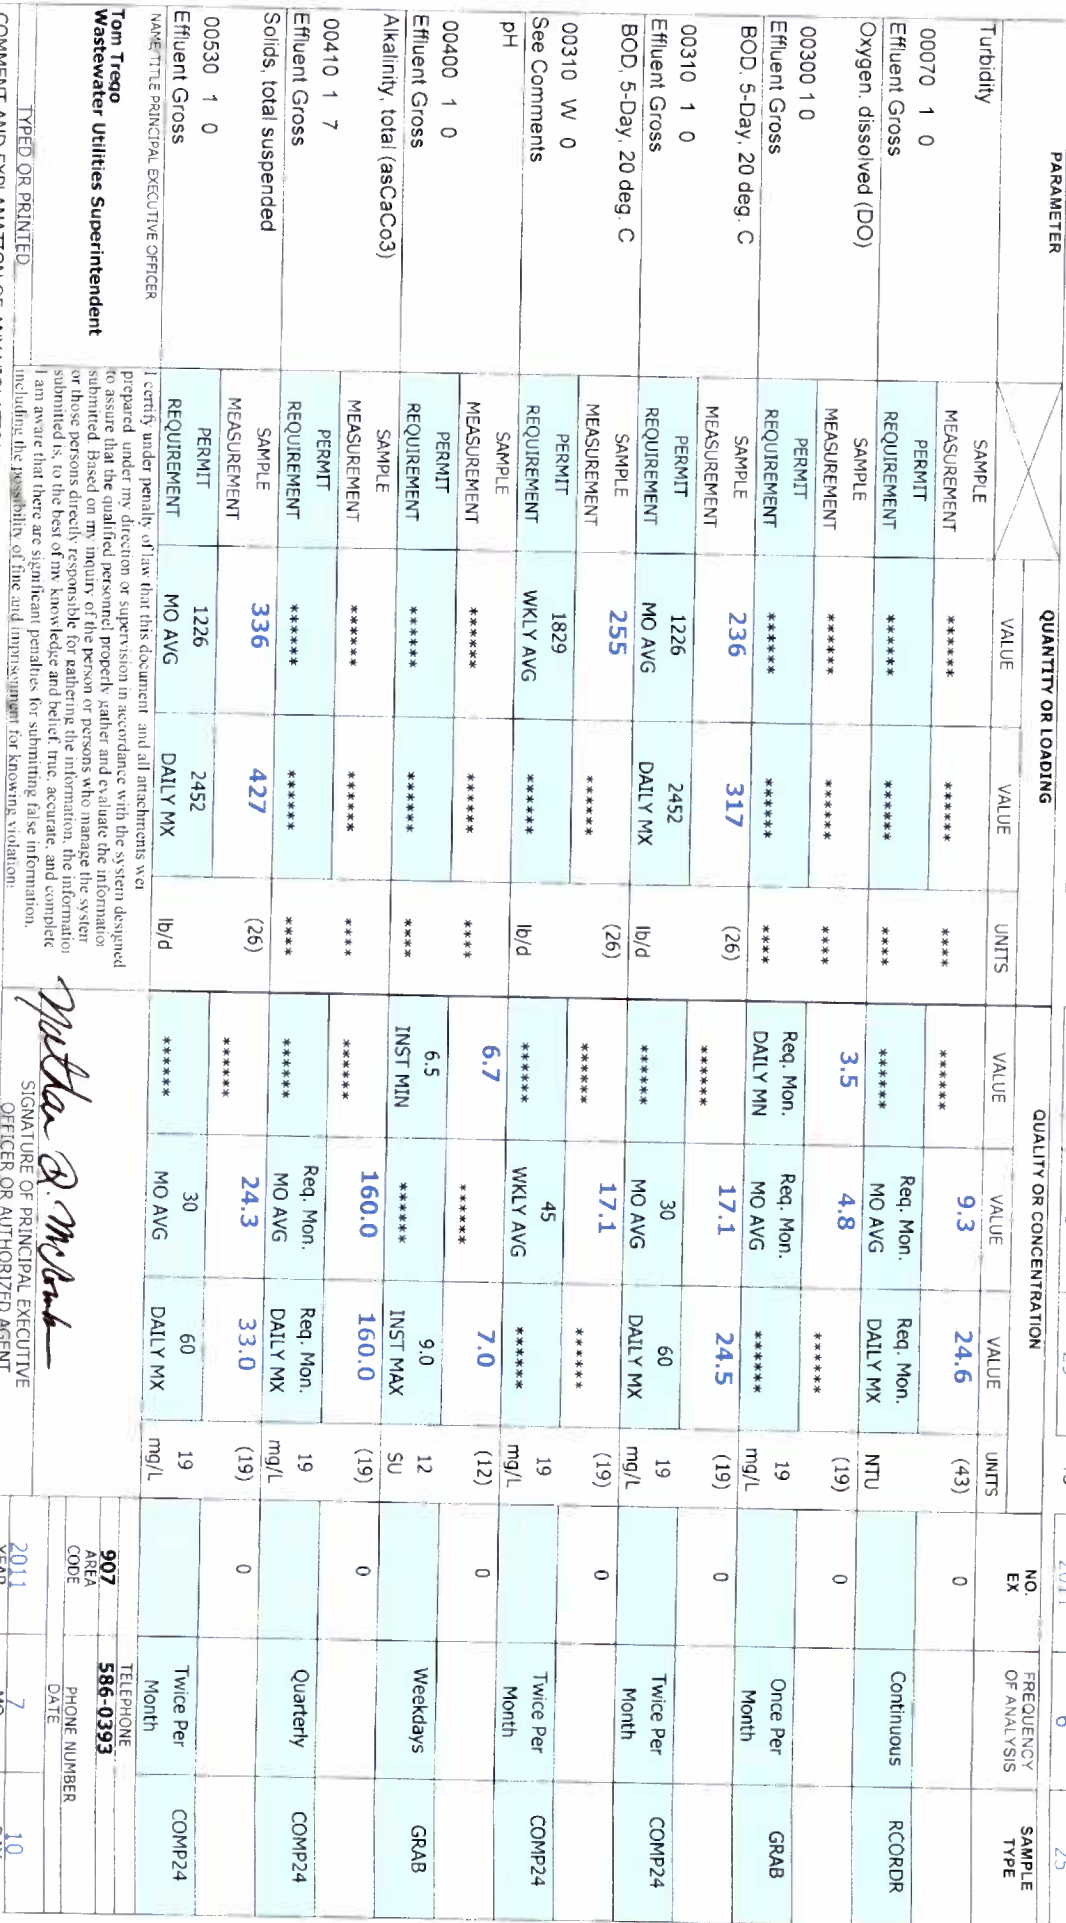 PARAMETER
QUANTITY OR LOADING
QUALITY OR CONCENTRATION
NO. EX
FREQUENCY OF ANALYSIS
SAMPLE TYPE
VALUE VALUE UNITS VALUE VALUE VALUE UNITS
Turbidity
SAMPLE MEASUREMENT ****** ****** **** ****** 9.3 24.6 (43) 0
00070 1 0
Effluent Gross
PERMIT REQUIREMENT ****** ****** **** ****** Req. Mon. MO AVG Req. Mon. DAILY MX NTU Continuous RCORDR
Oxygen, dissolved (DO)
SAMPLE MEASUREMENT ****** ****** **** 3.5 4.8 ****** (19) 0
00300 1 0
Effluent Gross
PERMIT REQUIREMENT ****** ****** **** Req. Mon. DAILY MN Req. Mon. MO AVG ****** 19 mg/L Once Per Month GRAB
BOD, 5-Day, 20 deg. C
SAMPLE MEASUREMENT 236 317 (26) ****** 17.1 24.5 (19) 0
00310 1 0
Effluent Gross
PERMIT REQUIREMENT 1226 MO AVG 2452 DAILY MX lb/d ****** 30 MO AVG 60 DAILY MX 19 mg/L Twice Per Month COMP24
BOD, 5-Day, 20 deg. C
SAMPLE MEASUREMENT 255 ****** (26) ****** 17.1 ****** (19) 0
00310 W 0
See Comments
PERMIT REQUIREMENT 1829 WKLY AVG ****** lb/d ****** 45 WKLY AVG ****** 19 mg/L Twice Per Month COMP24
pH
SAMPLE MEASUREMENT ****** ****** **** 6.7 ****** 7.0 (12) 0
00400 1 0
Effluent Gross
PERMIT REQUIREMENT ****** ****** **** 6.5 INST MIN ****** 9.0 INST MAX 12 SU Weekdays GRAB
Alkalinity, total (asCaCo3)
SAMPLE MEASUREMENT ****** ****** **** ****** 160.0 160.0 (19) 0
00410 1 7
Effluent Gross
PERMIT REQUIREMENT ****** ****** **** ****** Req. Mon. MO AVG Req. Mon. DAILY MX 19 mg/L Quarterly COMP24
Solids, total suspended
SAMPLE MEASUREMENT 336 427 (26) ****** 24.3 33.0 (19) 0
00530 1 0
Effluent Gross
PERMIT REQUIREMENT 1226 MO AVG 2452 DAILY MX lb/d ****** 30 MO AVG 60 DAILY MX 19 mg/L Twice Per Month COMP24
NAME/TITLE PRINCIPAL EXECUTIVE OFFICER
Tom Trego
Wastewater Utilities Superintendent
TYPED OR PRINTED
I certify under penalty of law that this document and all attachments wer
prepared under my direction or supervision in accordance with the system designed
to assure that the qualified personnel properly gather and evaluate the informatio
submitted. Based on my inquiry of the person or persons who manage the system
or those persons directly responsible for gathering the information, the informatio
submitted is, to the best of my knowledge and belief, true, accurate, and complete
I am aware that there are significant penalties for submitting false information,
including the possibility of fine and imprisonment for knowing violation:
Nathan R. McComb
SIGNATURE OF PRINCIPAL EXECUTIVE
OFFICER OR AUTHORIZED AGENT
TELEPHONE
907 586-0393
AREA CODE PHONE NUMBER
DATE
2011 7 10
YEAR MO DAY
COMMENT AND EXPLANATION OF ANY